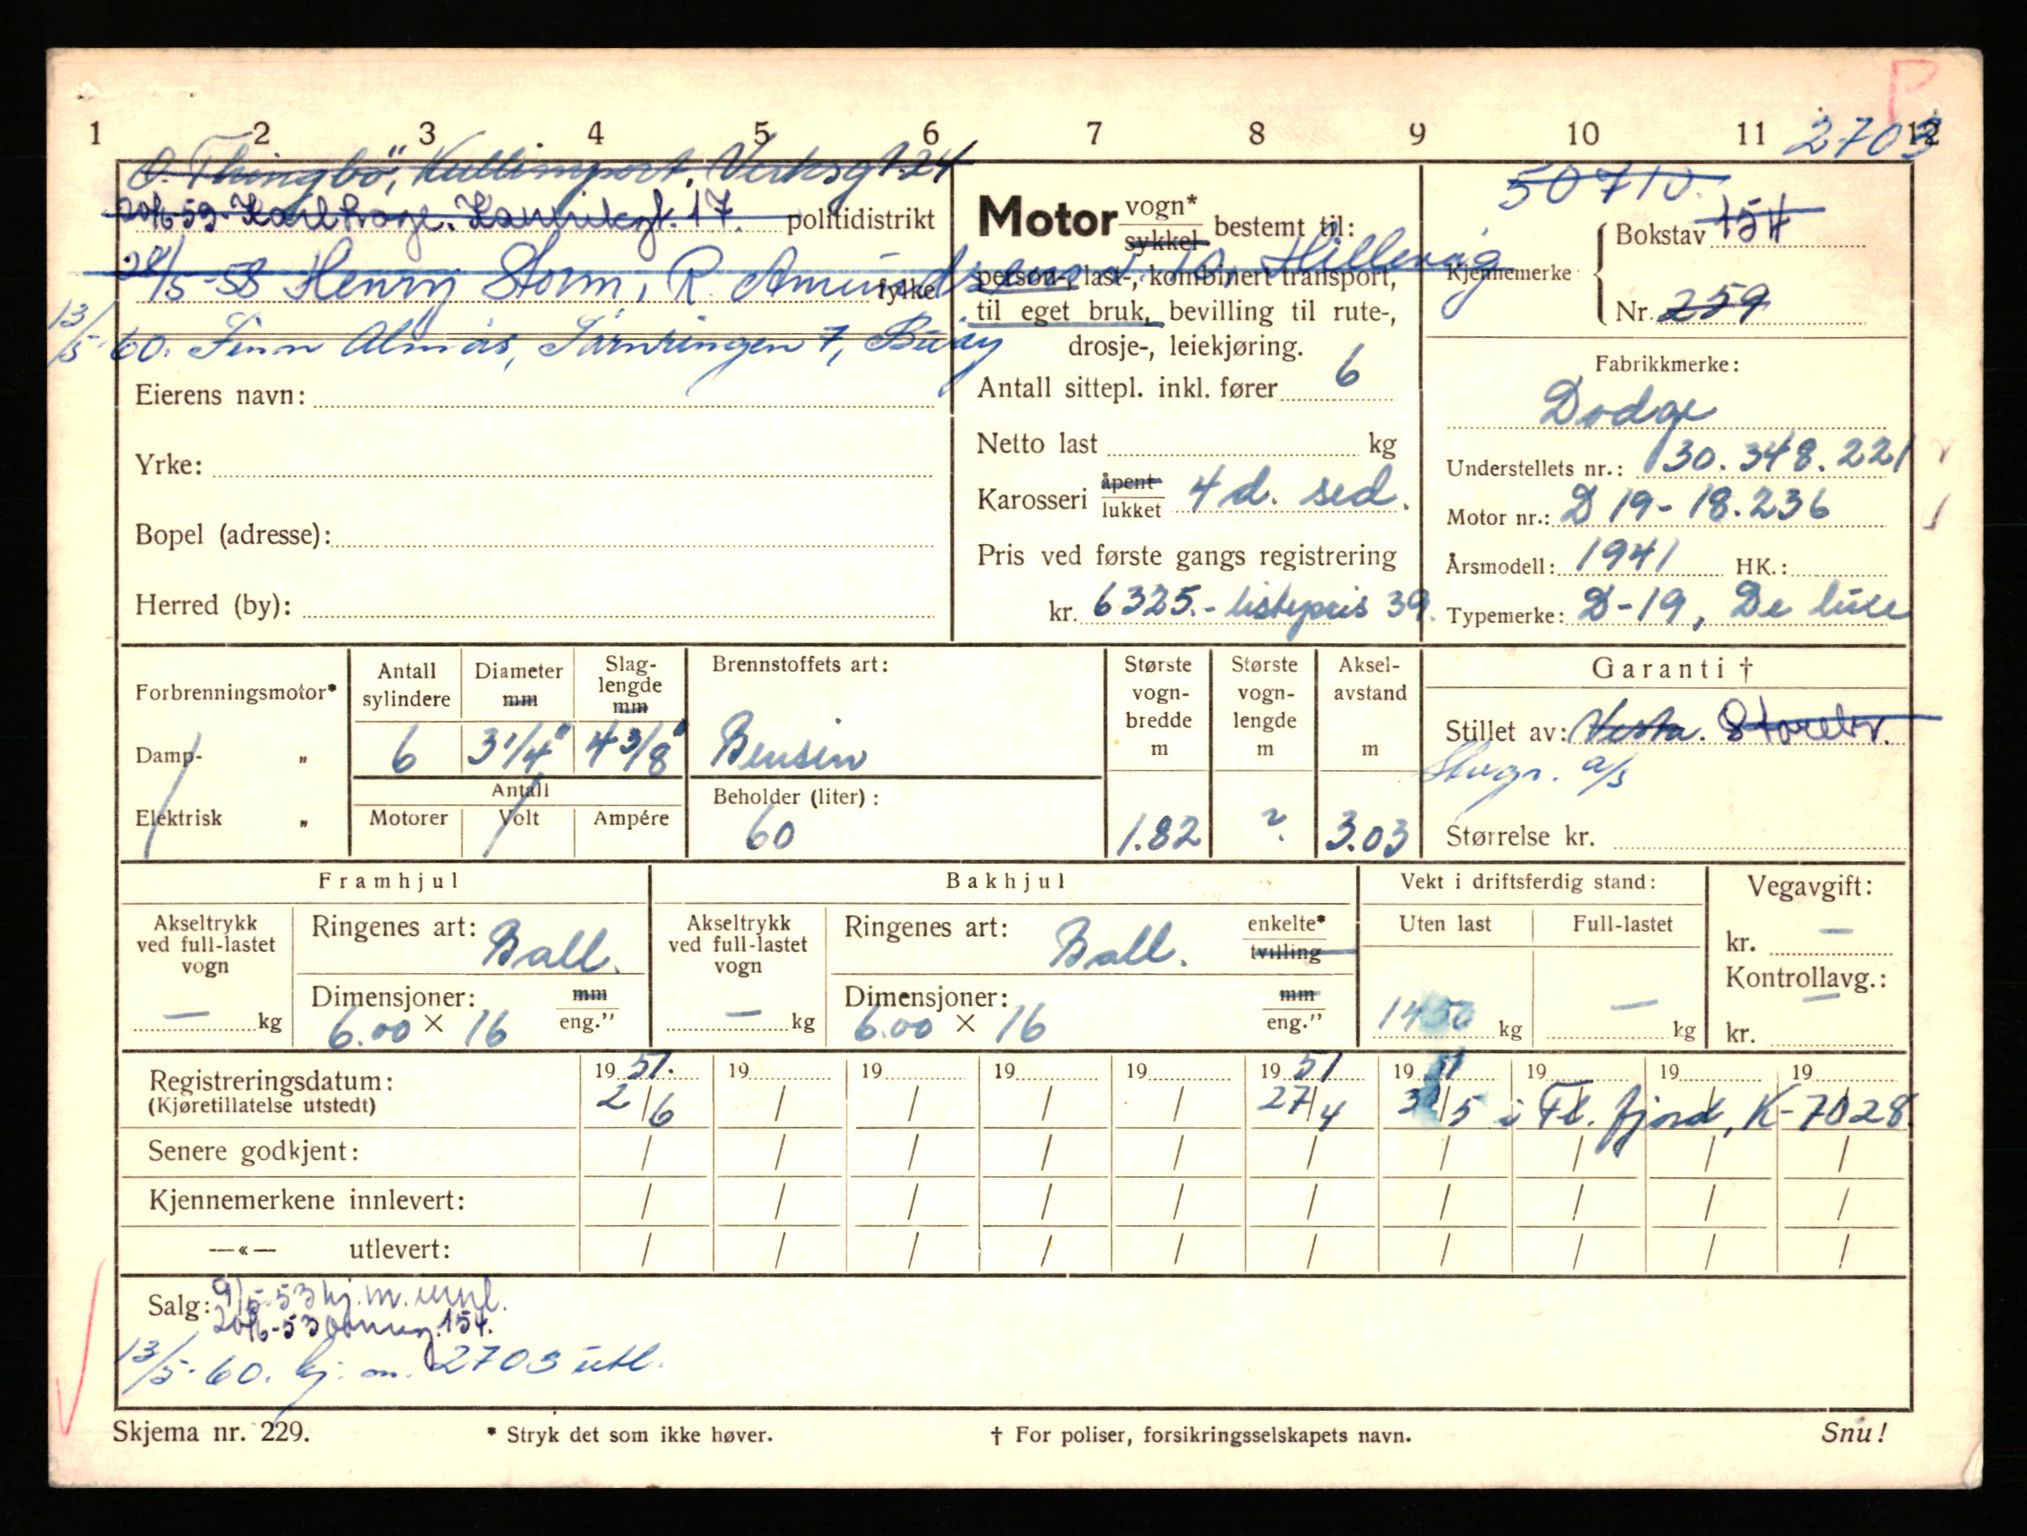 P
1 2 3 4 5 6 7 8 9 10 11 12
2703
O. Thingbø, Kullimport, Verksgt. 24
50710.
20/6-53. Karl Hroge. Kannikgt. 17. politidistrikt
28/5-58 Henry Storm, R. Amundsens Hillevåg
fylke
13/5-60. Finn Almås, Tårnringen 7, Buøy
Eierens navn:
Yrke:
Bopel (adresse):
Herred (by):
Motor vogn* sykkel bestemt til:
person-, last-, kombinert transport,
til eget bruk, bevilling til rute-,
drosje-, leiekjøring.
Antall sittepl. inkl. fører 6
Netto last kg
Karosseri åpent lukket 4 d. sed.
Pris ved første gangs registrering
kr. 6325.- listepris 39.
Kjennemerke
Bokstav 154
Nr. 259
Fabrikkmerke:
Dodge
Understellets nr.: 30.348.221
Motor nr.: D 19 - 18.236
Årsmodell: 1941 HK.:
Typemerke: D-19, De luxe
Forbrenningsmotor*
Damp- „
Elektrisk „
Antall sylindere 6
Diameter mm 3 1/4"
Slaglengde mm 4 3/8"
Antall
Motorer Volt Ampére
Brennstoffets art:
Bensin
Beholder (liter):
60
Største vognbredde m 1.82
Største vognlengde m ?
Akselavstand m 3.03
Garanti †
Stillet av: Vesta. Storebr.
a/s
Størrelse kr.
Framhjul
Akseltrykk ved full-lastet vogn — kg
Ringenes art: Ball.
Dimensjoner: mm eng."
6.00 × 16
Bakhjul
Akseltrykk ved full-lastet vogn — kg
Ringenes art: Ball. enkelte* tvilling
Dimensjoner: mm eng."
6.00 × 16
Vekt i driftsferdig stand:
Uten last 1450 kg
Full-lastet — kg
Vegavgift:
kr. —
Kontrollavg.: —
kr.
Registreringsdatum: 19 51. 19 19 19 19 19 51 19 51 19 19 19
(Kjøretillatelse utstedt) 2/6 / / / / 27/4 /5 i Fl. fjord, K-7028.
Senere godkjent: / / / / / / / / / /
Kjennemerkene innlevert: / / / / / / / / / /
—«— utlevert: / / / / / / / / / /
Salg: 9/5-53 kj.m. innl.
20/6-53 154.
13/5-60. kj. m. 2703 utl.
Skjema nr. 229. * Stryk det som ikke høver. † For poliser, forsikringsselskapets navn. Snu!